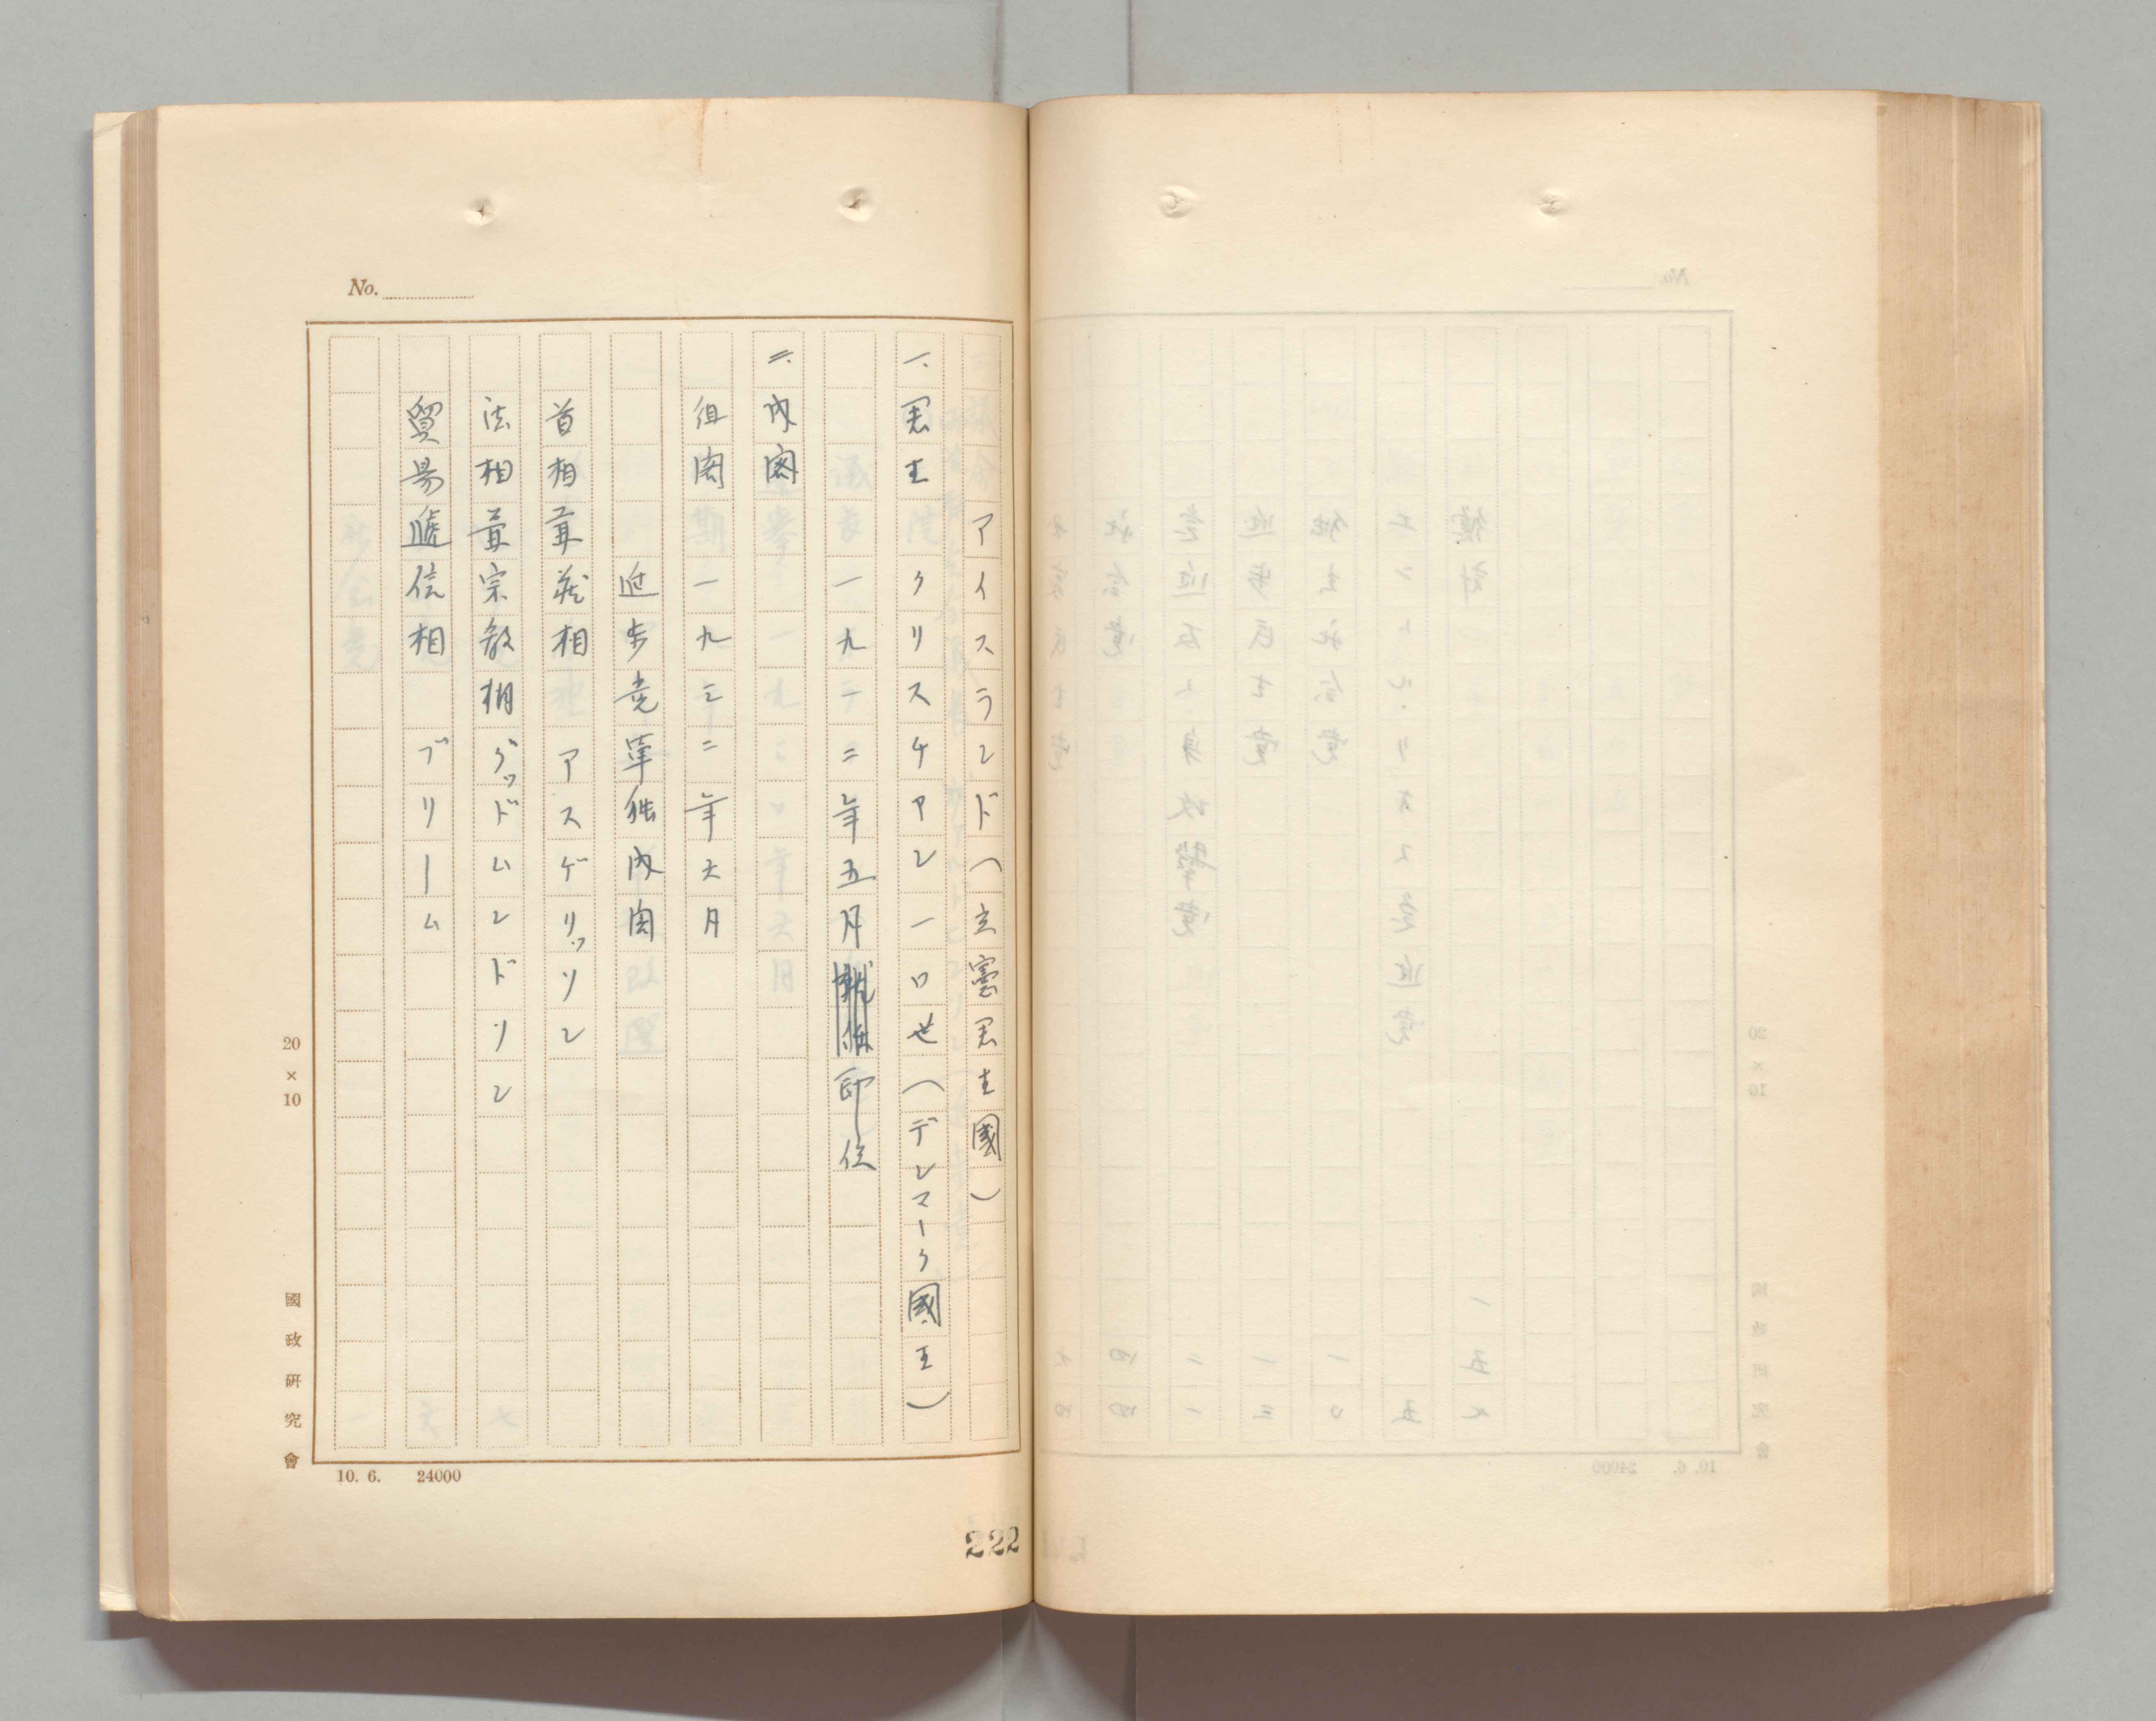 No.
アイスランド(立憲君主國)
一、君主 クリスチアン一〇世(デンマーク國王)
一九一二年五月即位
二、内閣
組閣 一九三二年六月
進步党單独内閣
首相兼蔵相 アスゲリッソン
法相兼宗教相 グッドムンドソン
貿易遞信相 ブリーム
20×10
國政研究會
10. 6. 24000
222